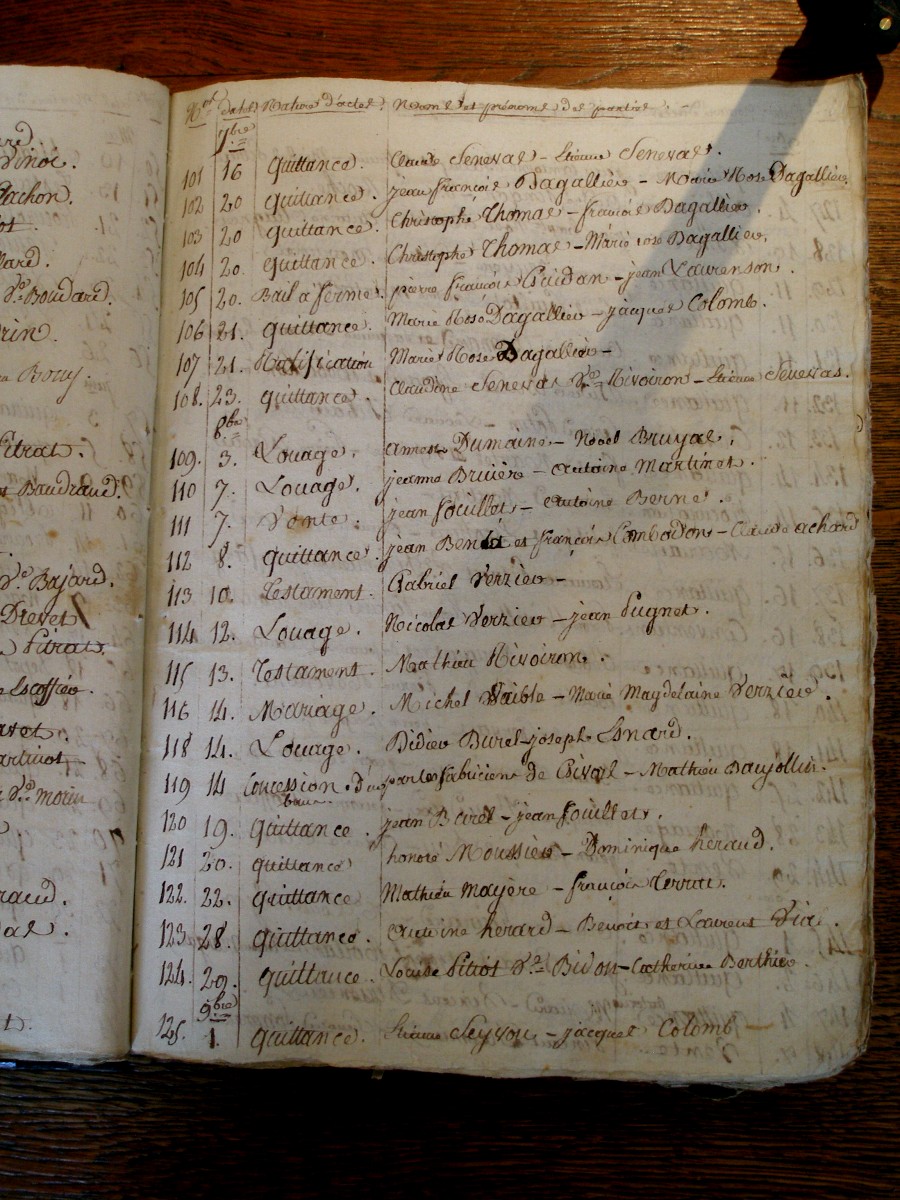 ard.
Vinoi.
Pachon.
lard.
Vve Boudard.
rin.
Pitrat.
Baudrand.
Vve Bajard.
Drevet
Pitrat.
Escoffier.
Vve morin
raud.
al.
Nos dates Nature d'actes. Noms et prénoms des parties.
7bre
101 16 quittance. Claude Seneval - Etienne Seneval.
102 20 quittance. jean françois Dagallier - Marie Rose Dagallier.
103 20 quittance. Christophe Thomas - françois Dagallier.
104 20. quittance. Christophe Thomas - Marie rose Dagallier.
105 20. Bail a ferme. pierre françois Guidan - jean Laurenson.
106 21. quittance. Marie Rose Dagallier - jacques Colomb.
107 21. Ratification Marie Rose Dagallier -
108. 23. quittance. Claudine Seneval Vve Rivoiron - Etienne Seneval.
8bre
109. 3. Louage. Dumaine - Noel Bruyas.
110 7. Louage. jeanne Bruière - Antoine Martinet.
111 7. Vente. jean fouillet - Antoine Berne.
112 8. quittance. jean Benoit et françois Combadon - Claude achard
113 10. Testament. Gabriel Verzier -
114 12. Louage. Nicolas Verzier - jean Pugnet.
115 13. Testament. Mathieu Rivoiron.
116 14. Mariage. Michel Vaible - Marie Magdelaine Verzier.
118 14. Louage. Didier Burel - joseph Esnard.
119 14 Concession d'un par les fabriciens de - Mathieu Baujollin.
banc
120 19. quittance. jean Burel - jean fouillet.
121 20. quittance honoré Moussier - Dominique heraud.
122. 22. quittance Mathieu mayère - françois Terrut.
123 28. quittance. Antoine herard - Benoit et Laurent Via.
124 29. quittance. Louise Pitiot Vve Bidon - Catherine Berthier.
9bre
125. 1. quittance. Etienne Seyvon - jacques Colomb